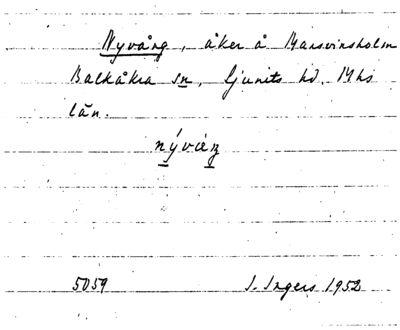 Nyvång, åker å Marsvinsholm
Balkåkra sn, Ljunits hd. Mhs
län.
nývàŋ
5059 I. Ingers 1952